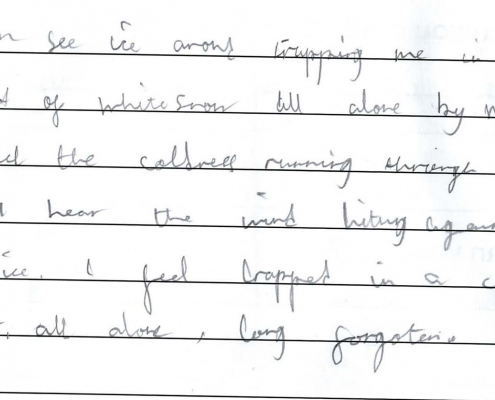 see ice arond trapping me in
of white snow all alone by
the coldness running through
hear the wind hiting again
ice. I feel trapped in a c
, all alone, long forgoten.